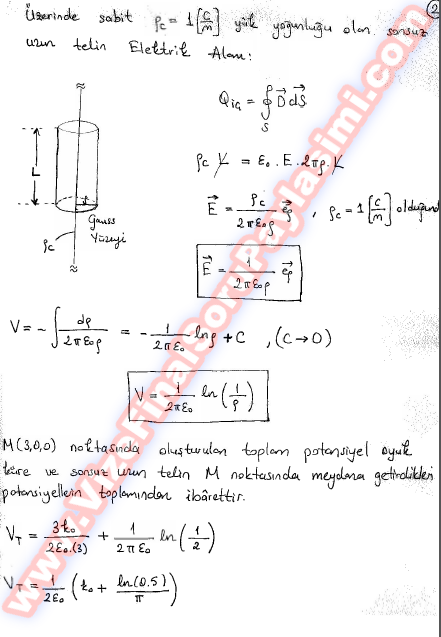 2
Üzerinde sabit ρc = 1 [C/m] yük yoğunluğu olan sonsuz
uzun telin Elektrik Alanı:
Qiç = ∮S D⃗ dS⃗
L
Gauss
Yüzeyi
ρc
ρc L = ε0 . E . 2πρ . L
E⃗ = ρc / 2πε0ρ e⃗ρ , ρc = 1 [C/m] olduğund
E⃗ = 1 / 2πε0ρ e⃗ρ
V = - ∫ dρ / 2πε0ρ = - 1 / 2πε0 lnρ + C , (C→0)
V = 1 / 2πε0 ln (1/ρ)
M(3,0,0) noktasında oluşturulan toplam potansiyel oyuk
küre ve sonsuz uzun telin M noktasında meydana getirdikleri
potansiyellerin toplamından ibârettir.
VT = 3k0 / 2ε0.(3) + 1 / 2πε0 ln (1/2)
VT = 1 / 2ε0 (k0 + ln(0.5) / π)
www.VizeFinalSoruPaylasimi.com